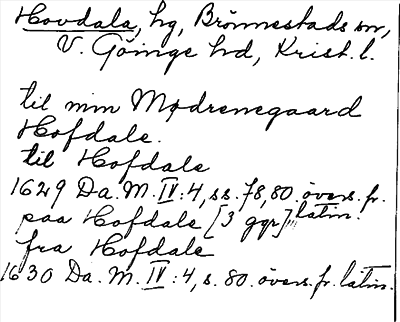 Hovdala, hg, Brönnestads sn,
V. Göinge hd, Krist. l.
til min Mødrenegaard
Hofdale.
til Hofdale
1629 Da. M. IV: 4, ss. 78, 80. övers. fr.
paa Hofdale [3 ggr], latin.
fra Hofdale
1630 Da. M. IV: 4, s. 80. övers. fr. latin.